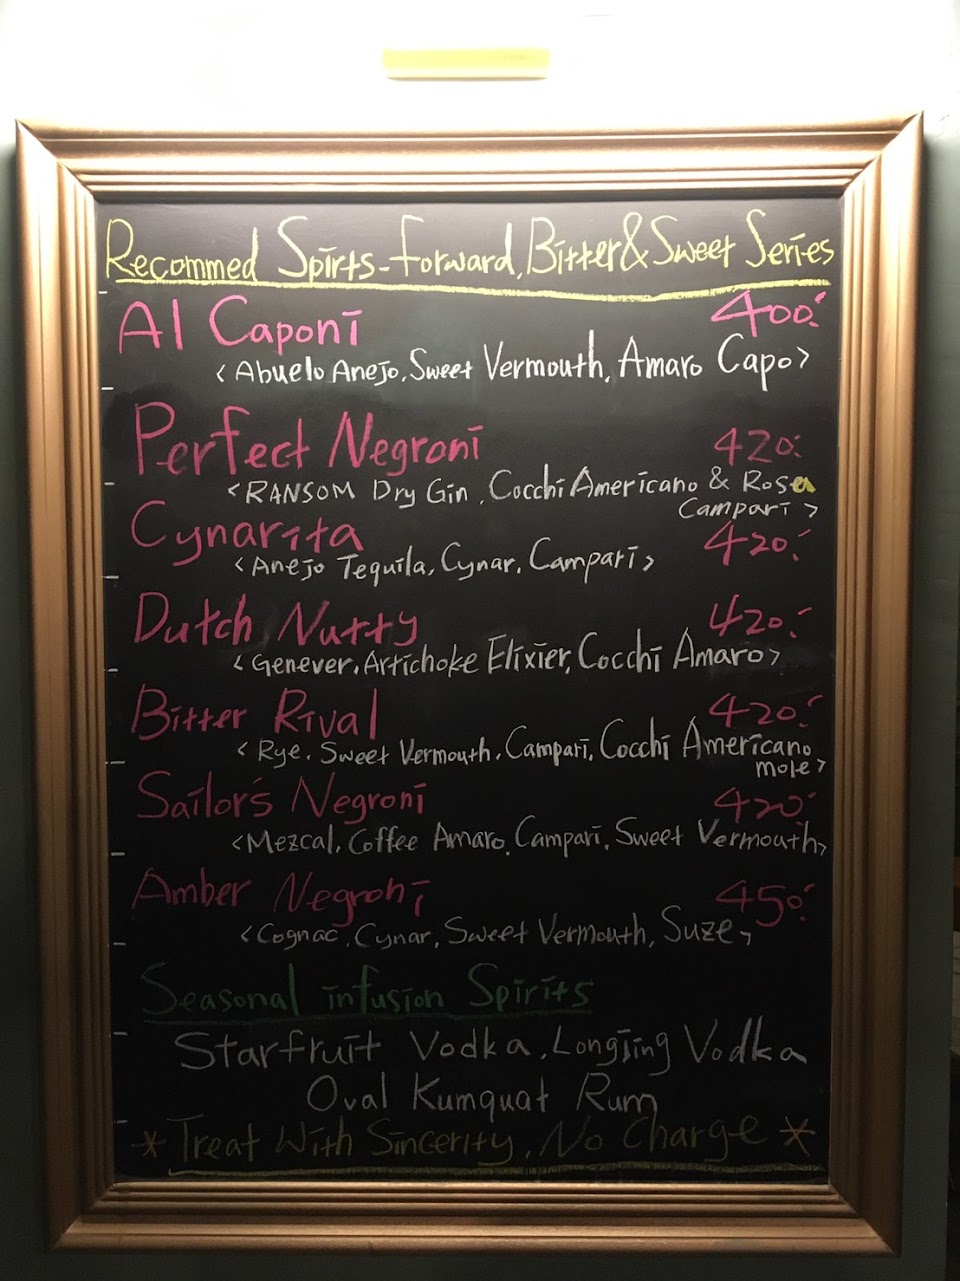 Recommed Spirts-forward, Bitter & Sweet Series
Al Caponi 400.-
<Abuelo Anejo, Sweet Vermouth, Amaro Capo>
Perfect Negroni 420.-
<RANSOM Dry Gin, Cocchi Americano & Rosa
Campari>
Cynarita 420.-
<Anejo Tequila, Cynar, Campari>
Dutch Nutty 420.-
<Genever, Artichoke Elixier, Cocchi Amaro>
Bitter Rival 420.-
<Rye, Sweet Vermouth, Campari, Cocchi Americano
mole>
Sailor's Negroni 420.-
<Mezcal, Coffee Amaro, Campari, Sweet Vermouth>
Amber Negroni 450.-
<Cognac, Cynar, Sweet Vermouth, Suze>
Seasonal infusion Spirits
Starfruit Vodka, Longjing Vodka
Oval Kumquat Rum
* Treat With Sincerity, No Charge *